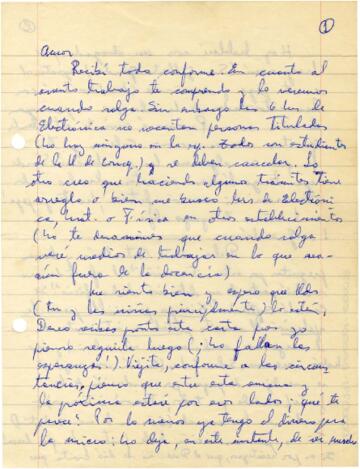 1
Amor
Recibí todo conforme. En cuanto al
asunto trabajo te comprendo y lo veremos
cuando salga. Sin embargo las 6 hrs de
Electrónica no necesitan personas tituladas
(no hay ninguna en la reg. Todos son estudiantes
de la U de Conc.) y se deben cancelar. Lo
otro creo que haciendo algunos trámites tiene
arreglo o bien me busco hrs de Electróni
ca, o Física en otros establecimientos
(No te desanimes que cuando salga
veré medios de trabajar en lo que sea
aún fuera de la docencia)
Me siento bien y espero que Uds
(tú y las niñas principalmente) lo estén.
Deseo recibas pronto esta carta pues yo
pienso seguirla luego (¡No fallan las
esperanzas!). Viejita, conforme a las circuns
tancias, pienso que entre esta semana y
la próxima estaré por esos lados; ¿qué te
parece? Por lo menos ya tengo el dinero para
la micro; no deja, en este instante, de ser mucho